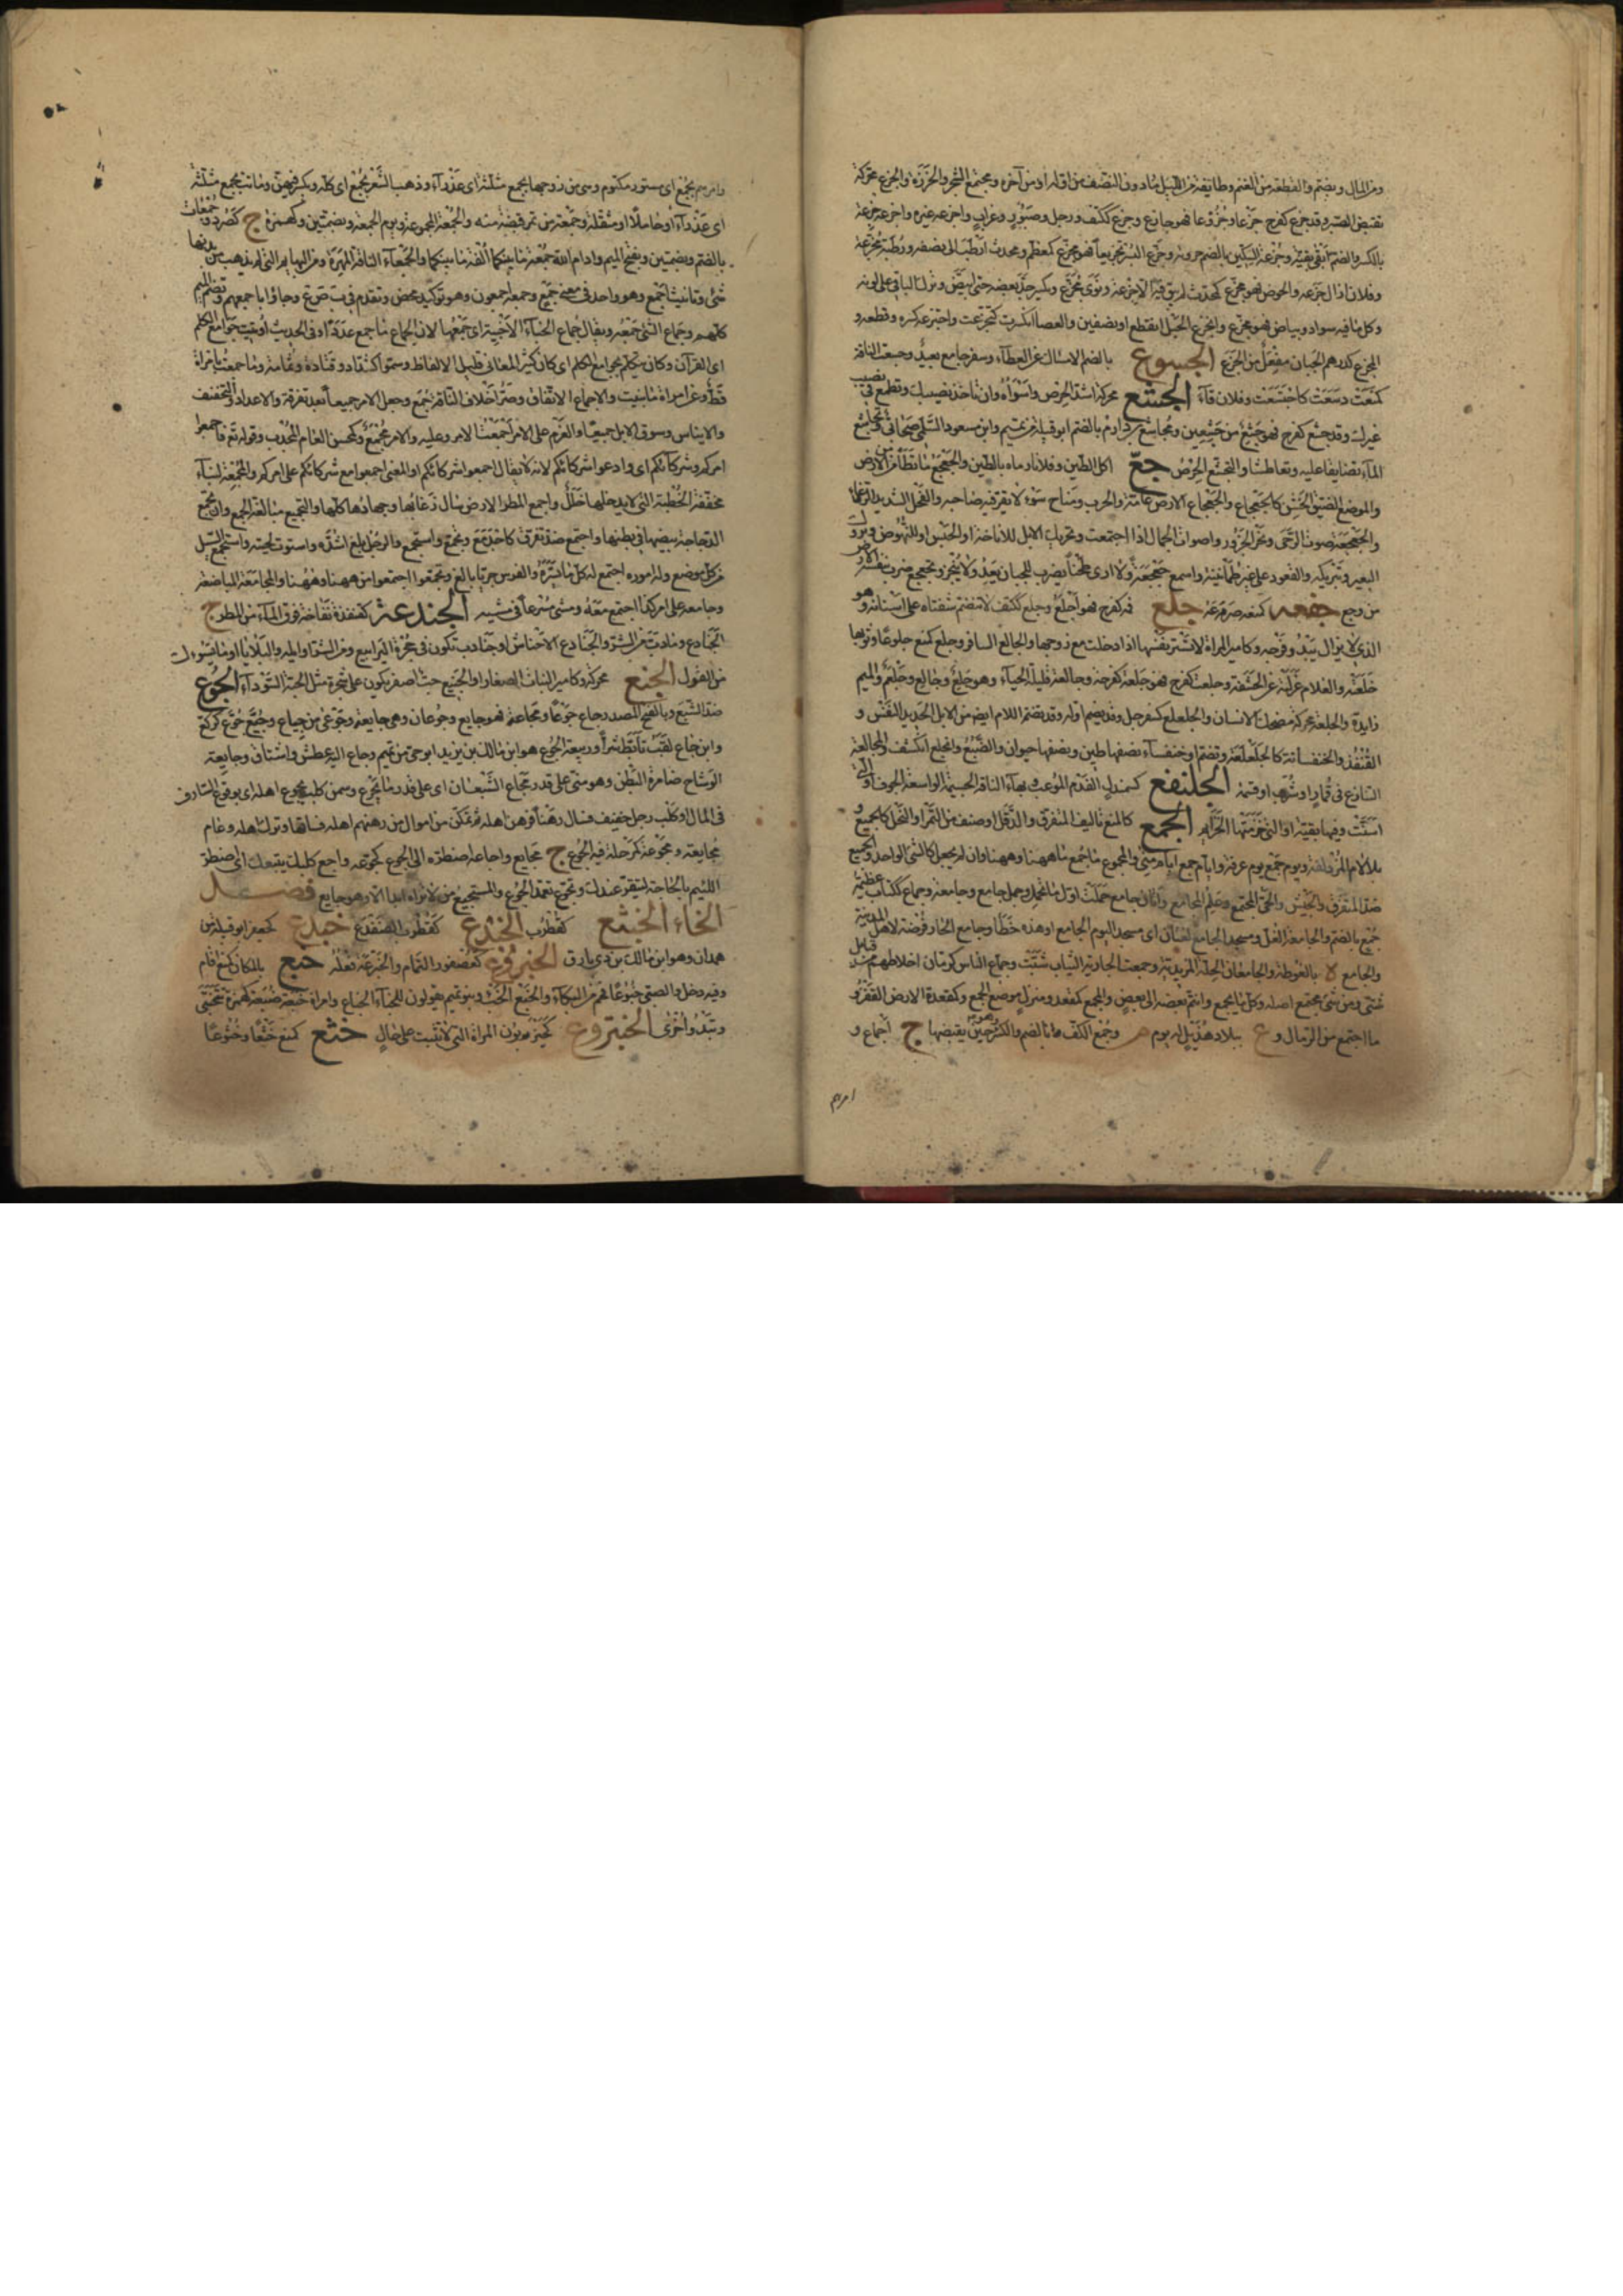 ومن المال ويضم والقطعة من الغنم وطايفة من الليل مادون النصف من اوله او من آخره ومجتمع الشجر والخرزة والجزع محركة
نقيض الصبر وقد جزع كفرح جزعا وجزوعا فهو جازع وجزع ككتف ورجل وصبور وغراب واجزعه غيره واجزعه جزعة
بالكسر والضم ابقى بقية وجزعة السكين بالضم جزأته وجزع البسر تجزيعا فهو مجزع كمعظم ومحدث ارطب الى نصفه ورطبة مجزعة
وفلانا ازال جزعه والحوض فهو مجزع كمحدث لم يبق فيه الا جزعة ونوى مجزع ويكسر حك بعضه حتى ابيض وترك الباقي على لونه
وكل ما فيه سواد وبياض فهو مجزع وانجزع الحبل انقطع او بنصفين والعصا انكسرت كتجزعت واجتزعه كسره وقطعه و
الهجزع كدرهم الجبان هفعل من الجزع الجسوع بالضم الامساك عن العطاء وسفر جاسع بعيد وجسعت الناقة
كمنعت دسعت كاجتسعت وفلان قاء الجشع محركة اشد الحرص واسوأه وان تاخذ نصيبك وتطمع في نصيب
غيرك وقد جشع كفرح فهو جشع من جشعين ومجاشع بن دارم بالضم ابو قبيلة من تميم وابن مسعود السلمي صحابي وتجاشعا
الماء تضايقا عليه وتعاطشا والتجشع الحرص جع اكل الطين وفلانا رماه بالطين والجعجع ما تطامن من الارض
والموضع الضيق الخشن كالجعجاع والجعجاع الارض عامة والحرب ومناخ سوء لا يقر فيه صاحبه والفحل الشديد الرغاء
والجعجعة صوت الرحى ونحر الجزور واصوات الجمال اذا اجتمعت وتحريك الابل للاناخة او الحبس او للنهوض وبروك
البعير وتبريكه والقعود على غير طمأنينة واسمع جعجعة ولا ارى طحنا يضرب للجبان يعد ولا ينجز وتجعجع ضرب بنفسه الارض
من وجع جفعه كمنعه صرعه جلع فمه كفرح فهو اجلع وجلع ككتف لا تنضم شفتاه على اسنانه وهو
الذي لا يزال يبدو فرجه وكامير المراة لا تستر نفسها اذا خلت مع زوجها والجالع السافر وجلعت كمنع جلوعا وثوبها
خلعته والغلام غرلته عن الحشفة وجلعت كفرح فهو جلعة كفرحة وجالعة قليلة الحياء وهو جلع وجالع وجلعم والميم
زايدة والجلعة محركة مضحك الانسان والجلعلع كسفرجل وقد يضم اوله وقد تضم اللام ايضا من الابل الحديد النفس و
القنفذ والخنفسانة كالجلعلعة وتضم او خنفساء نصفها طين ونصفها حيوان والضبع وانجلع انكشف والمجالعة
التنازع في قمار او شرب او قسمة الجلنفع كسمندل الفدم الوغب وبهاء الناقة الجسيمة الواسعة الجوف او التي
اسنت وفيها بقية او التي خزمتها الخزائم الجمع كالمنع تاليف المتفرق والدقل او صنف من التمر او النخل كالجميع
بلا لام المزدلفة ويوم جمع يوم عرفة وايام جمع ايام منى والمجموع ما جمع من ههنا وههنا وان لم يجعل كالشي الواحد والجميع
ضد المتفرق والجيش والحي المجتمع وعلم كجامع واتان جامع حملت اول ما تحمل وجمل جامع وجامعة وجماع ككتاب عظيمة
جمع بالضم والجامعة الغل ومسجد الجامع لغتان اى مسجد اليوم الجامع او هذه خطأ وجامع الجار فرضة لاهل المدينة
والجامع لا بالغوطة والجامعان الحلة المزيدية وجمعت الجارية الثياب شبت وجماع الناس كرمان اخلاطهم من قبائل
شتى ومن كل شى مجتمع اصله وكل ما تجمع وانضم بعضه الى بعض والمجمع كمقعد ومنزل موضع الجمع وكمقعدة الارض القفر و
ما اجتمع من الرمال و ع ببلاد هذيل له يوم وجمع الكف بالضم وهو حين يقبضها ج اجماع و
امرهم
وامرهم بجمع اى مستور مكتوم وهي من زوجها بجمع مثلثة اى عذراء وذهب الشهر بجمع اى كله ويكسر فيهن وماتت بجمع مثلثة
اى عذراء او حاملا او مثقلة وجمعة من تمر قبضة منه والجمعة المجموعة ويوم الجمعة وبضمتين وكهمزة ج كصرد وجمعات
بالضم وبضمتين وبفتح الميم وادام الله جمعة ما بينكما الفة ما بينكما والجمعاء الناقة الهرمة ومن البهايم التي لم يذهب من بدنها
شى وتانيث اجمع وهو واحد في معنى جمع وجمعه اجمعون وهو توكيد محض وتقدم في ب ت ع وجاؤا باجمعهم وتضم الميم
كلهم وجماع الشى جمعه ويقال جماع الخباء الاخبية اى جمعها لان الجماع ما جمع عددا وفي الحديث اوتيت جوامع الكلم
اى القرآن وكان يتكلم بجوامع الكلم اى كان كثير المعاني قليل الالفاظ وسموا كشداد وقتادة وثمامة وما جمعت بامراة
قط وعن امراة ما بنيت والاجماع الاتفاق وصر اخلاف الناقة جمع وجعل الامر جميعا بعد تفرقه والاعداد والتجفيف
والايباس وسوق الابل جميعا والعزم على الامر اجمعت الامر وعليه والامر مجمع وكمحسن العام المجدب وقوله تع فاجمعوا
امركم وشركاءكم اى وادعوا شركاءكم لانه لا يقال اجمعوا شركاءكم او المعنى اجمعوا مع شركائكم على امركم والمجمعة ببناء
مخففة الخطبة التي لا يدخلها خلل واجمع المطر الارض سال رغابها وجهادها كلها والتجميع مبالغة الجمع وان تجمع
الدجاجة بيضها في بطنها واجتمع ضد تفرق كاجدمع وتجمع واستجمع والرجل بلغ اشده واستوت لحيته واستجمع السيل
من كل موضع وله اموره اجتمع له كل ما يسره والفرس جريا بالغ وتجمعوا اجتمعوا من ههنا وههنا والمجامعة المباضعة
وجامعه على امر كذا اجتمع معه ومشى مسرعا في مشيه الجندعة كقنفذة نفاخة فوق الماء من المطر ج
الجنادع وما دب من الشر والجنادع الاحناش او جنادب تكون في جحرة اليرابيع ومن الشر اوايله والبلايا او ما يسوءك
من القول الجنع محركة وكامير النبات الصغار او الجنيع حب اصفر يكون على شجرة مثل الحبة السوداء الجوع
ضد الشبع وبالفتح المصدر جاع جوعا ومجاعة فهو جايع وجوعان وهي جايعة وجوعى من جياع وجوع كركع
وابن جاع لقب تابط شرا وربيعة الجوع هو ابن مالك بن زيد ابو حي من تميم وجاع اليه عطش واشتاق وجايعة
الوشاح ضامرة البطن وهو منى على قدر مجاع الشبعان اى على قدر ما يجوع وسمن كلب بجوع اهله اى بوقوع السواف
في المال او كلب رجل خيف فسال رهنا فرهن اهله فتمكن من اموال من رهنهم اهله فساقها وترك اهله وعام
مجاعة ومجوعة كمرحلة فيه الجوع ج مجايع واجاعه اضطره الى الجوع كجوعه واجع كلبك يتبعك اى اضطر
اللئيم بالحاجة ليقر عندك وتجوع تعمد الجوع والمستجيع من لا تراه ابدا الا وهو جايع فصل
الخاء الخبثع كقنفذ الخبدع كقنفذ الضفدع خبدع كجعفر ابو قبيلة من
همدان وهو ابن مالك بن ذي بارق الخبروع كعصفور النمام والخبرعة فعله خبع بالمكان كمنع اقام
وفيه دخل والصبي خبوعا فحم من البكاء والخبع الخبء وبنو تميم يقولون للخباء الخباع وامراة خبعة طلعة كهمزة تختبئ
وتبدو اخرى الخبتروع كحيزبون المراة التي لا تثبت على حال ختع كمنع ختعا وختوعا